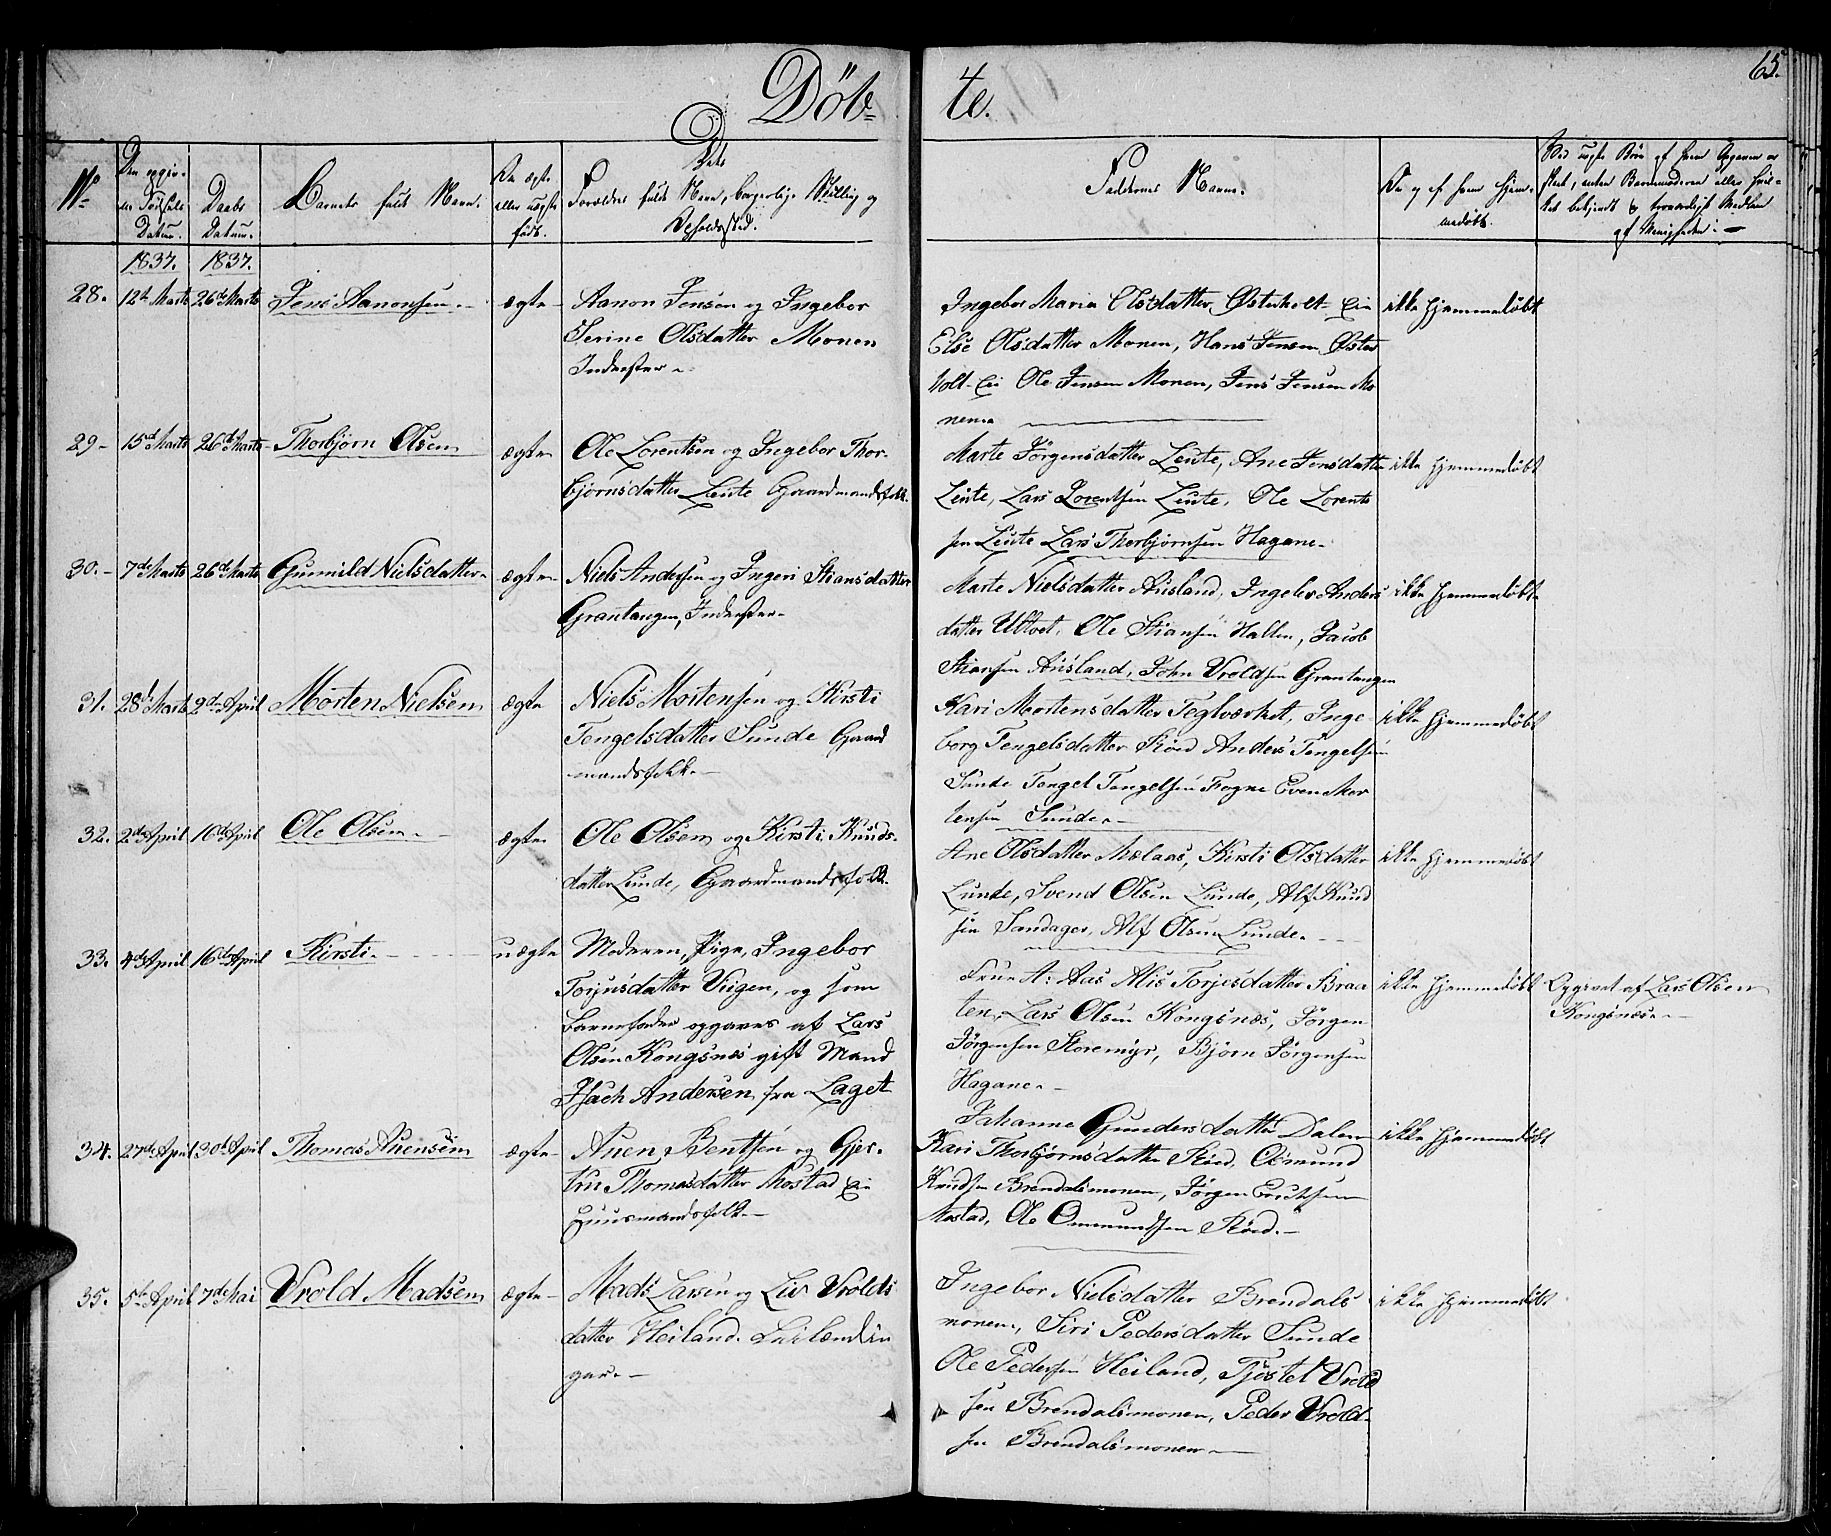 Døb=
te.
65.
No
Den opgiv-
ne Fødsels
Datum.
Daabs
Datum.
Barnets fulde Navn.
Om ægte
eller uægte
født.
Dets
Forældres fulde Navn, borgerlige Stilling og
Opholdssted.
Faddernes Navne.
Om og af hvem hjem-
medøbt.
Ved uægte Børn af hvem Opgaven er
skeet, enten Barnemoderen eller hvil-
ket bekjendt & troværdigt Medlem
af Menigheden: -
1837.
1837.
28. 12te Marts 26de Marts Jens Aanonsen. ægte
Aanon Jensen og Ingebor
Serine Olsdatter Monen
Inderster.
Ingebor Maria Olsdatter Østerholt Ei
Else Olsdatter Monen, Hans Jensen Øster
holt Ei Ole Jensen Monen, Jens Jensen Mo
nen.
ikke hjemmedøbt
29 15de Marts 26de Marts Thorbjørn Olsen ægte
Ole Lorentsen og Ingebor Thor-
bjørnsdatter Leute Gaardmandsfolk.
Marte Jörgensdatter Leute, Ane Jensdatter
Leute, Lars Lorentsen Leute, Ole Lorent
sen Leute Lars Thorbjørnsen Hagane
ikke hjemmedøbt
30. 7de Marts 26de Marts Gunnild Nielsdatter ægte
Niels Andersen og Ingeri Stiansdatter
Grantangen, Inderster
Marte Nielsdatter Ausland, Ingeborg Anders
datter Ultvet, Ole Stiansen Hallen, Jacob
Stiansen Ausland, John Vroldsen Grantangen
ikke hjemmedøbt
31. 28de Marts 2den April Morten Nielsen ægte
Niels Mortensen og Kirsti
Tengelsdatter Sunde Gaard
mandsfolk.
Kari Mortensdatter Teglværket, Inge
borg Tengelsdatter Röed Anders Tengelsen
Sunde Tengel Tengelsen Fogne Even Mor
tensen Sunde.
ikke hjemmedøbt
32. 2den April 16de April Ole Olsen ægte
Ole Olsen og Kirsti Knuds-
datter Lunde, Gaardmandsfolk.
Ane Olsdatter Mælaas, Kirsti Olsdatter
Lunde, Svend Olsen Lunde, Alf Knud
sen Sandager, Alf Olsen Lunde.
ikke hjemmedøbt
33. 4de April 16de April Kirsti. uægte
Moderen, Pige, Ingebor
Torjusdatter Vigen, og som
Barnefader opgaves af Lars
Olsen Kongsnæs gift Mand
Isach Andersen fra Laget
Frue A: Aas Alis Torjesdatter Braa
ten, Lars Olsen Kongsnæs, Jörgen
Jörgensen Storemyr, Björn Jörgensen
Hagane.
ikke hjemmedøbt
Opgivet af Lars Olsen
Kongsnæs.
34. 27de April 30te April Thomas Anensen ægte
Anen Bentsen og Gjer-
tru Thomasdatter Mostad Ei
Huusmandsfolk.
Johanne Gundersdatter Dalen
Kari Thorbjørnsdatter Röed, Osmund
Knudsen Brendalsmonen, Jörgen Eriksen
Mostad, Ole Ommundsen Röed.
ikke hjemmedøbt
35. 5te April 7de Mai Vrold Madsen ægte
Mads Larsen og Liv Vrolds
datter Heiland. Leilændin
ger.
Ingebor Nielsdatter Brendals
monen, Siri Pedersdatter Sunde
Ole Pedersen Heiland, Tjöstel Vrold
sen Brendalsmonen, Peder Vrold-
sen Brendalsmonen
ikke hjemmedøbt